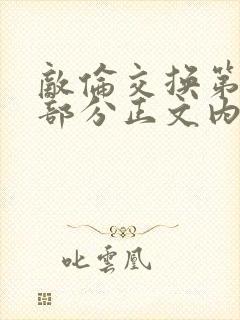 敵倫交換第
部分正文內
叱雲凰